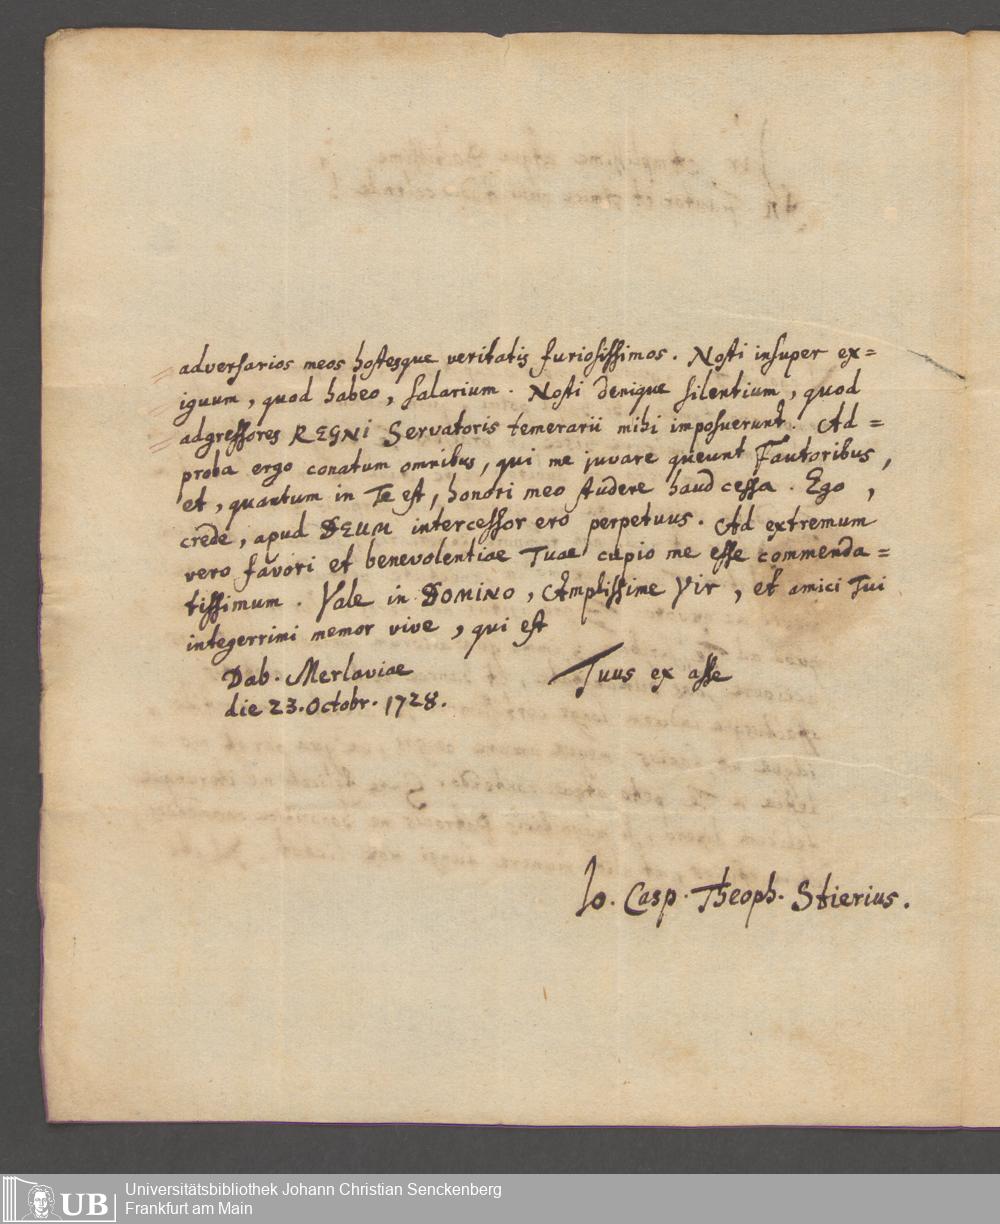 adversarios meos hostesque veritatis furiosissimos. Nosti insuper ex=
iguum, quod habeo, salarium. Nosti denique silentium, quod
adgressores REGNI Servatoris temerarii mihi imposuerunt. Ad=
proba ergo conatum omnibus, qui me juvare queunt Fautoribus,
et, quantum in Te est, honori meo studere haud cessa. Ego,
crede, apud DEUM intercessor ero perpetuus. Ad extremum
vero favori et benevolentiae Tuae cupio me esse commenda=
tissimum. Vale in DOMINO, Amplissime Vir, et amici Tui
integerrimi memor vive, qui est
Dab. Merlaviae
die 23. Octobr. 1728.
Tuus ex asse
Io. Casp. Theoph. Stierius.
UB
Universitätsbibliothek Johann Christian Senckenberg
Frankfurt am Main